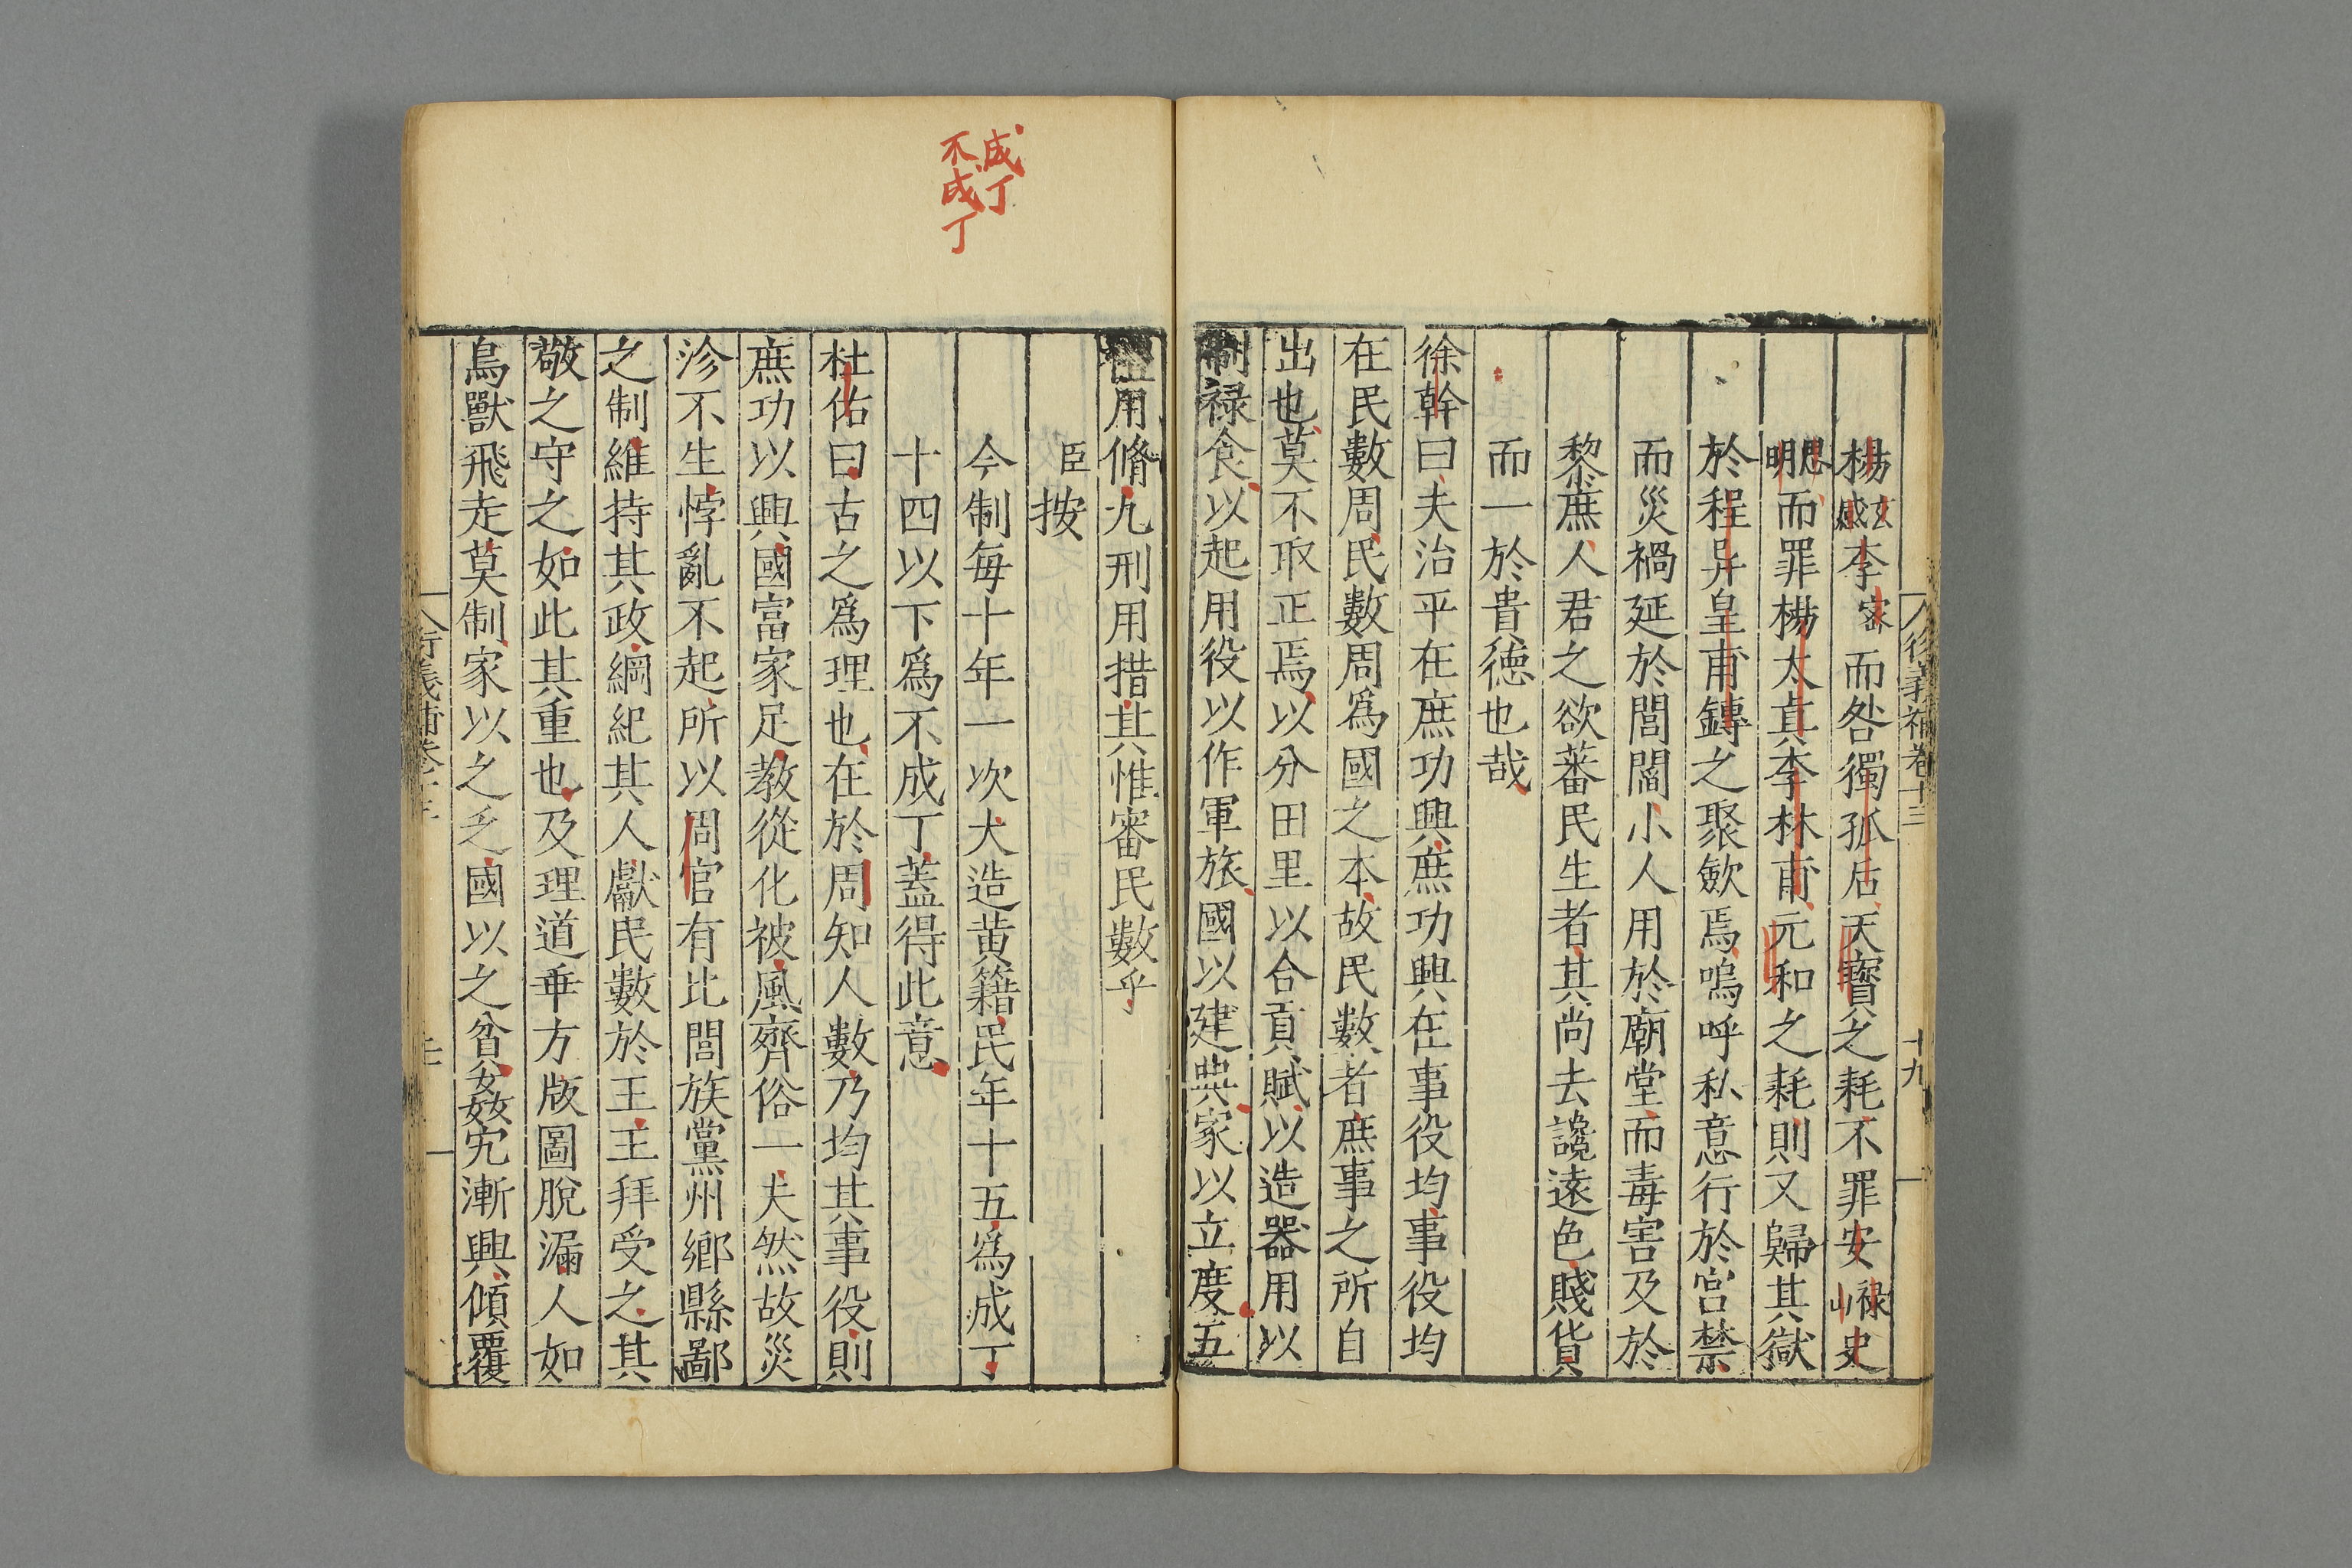 楊玄感李密而咎獨孤后天寶之耗不罪安祿山史
思明而罪楊太真李林甫元和之耗則又歸其獄
於程异皇甫鏄之聚歛焉嗚呼私意行於宮禁
而災禍延於閭閻小人用於廟堂而毒害及於
黎庶人君之欲蕃民生者其尚去讒遠色賤貨
而一於貴德也哉
徐幹曰夫治平在庶功興庶功興在事役均事役均
在民數周民數周爲國之本故民數者庶事之所自
出也莫不取正焉以分田里以令貢賦以造器用以
制祿食以起用役以作軍旅國以建典家以立度五
禮用脩九刑用措其惟審民數乎
臣按
今制每十年一次大造黄籍民年十五爲成丁
十四以下爲不成丁蓋得此意
杜佑曰古之爲理也在於周知人數乃均其事役則
庶功以興國富家足教從化被風齊俗一夫然故災
沴不生悖亂不起所以周官有比閭族黨州鄉縣鄙
之制維持其政綱紀其人獻民數於王王拜受之其
敬之守之如此其重也及理道乖方版圖脫漏人如
鳥獸飛走莫制家以之乏國以之貧姦宄漸興傾覆
成丁
不成丁
衍義補卷十三
十九
衍義補卷十三